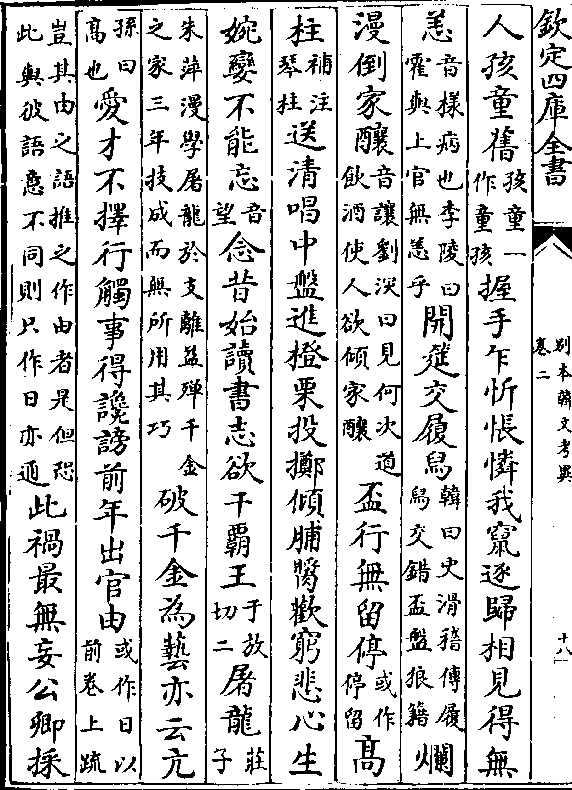 欽定四庫全書
別本韓文考異
卷二
十八
人孩童舊孩童一作童孩握手乍忻悵憐我竄逐歸相見得無
恙音樣病也李陵曰霍與上官無恙乎開筵交履舄韓曰史滑稽傳履舄交錯盃盤狼籍爛
漫倒家釀音讓劉惔曰見何次道飲酒使人欲傾家釀盃行無留停或作停留高
柱補注琴柱送清唱中盤進橙栗投擲傾脯醬歡窮悲心生
婉孌不能忘音望念昔始讀書志欲干霸王于放切二屠龍莊子
朱萍漫學屠龍於支離益殫千金之家三年技成而無所用其巧破千金為藝亦云亢
孫曰高也愛才不擇行觸事得讒謗前年出官由或作日以前卷上疏
豈其由之語推之作由者是但恐此與彼語意不同則只作日亦通此禍最無妄公卿採